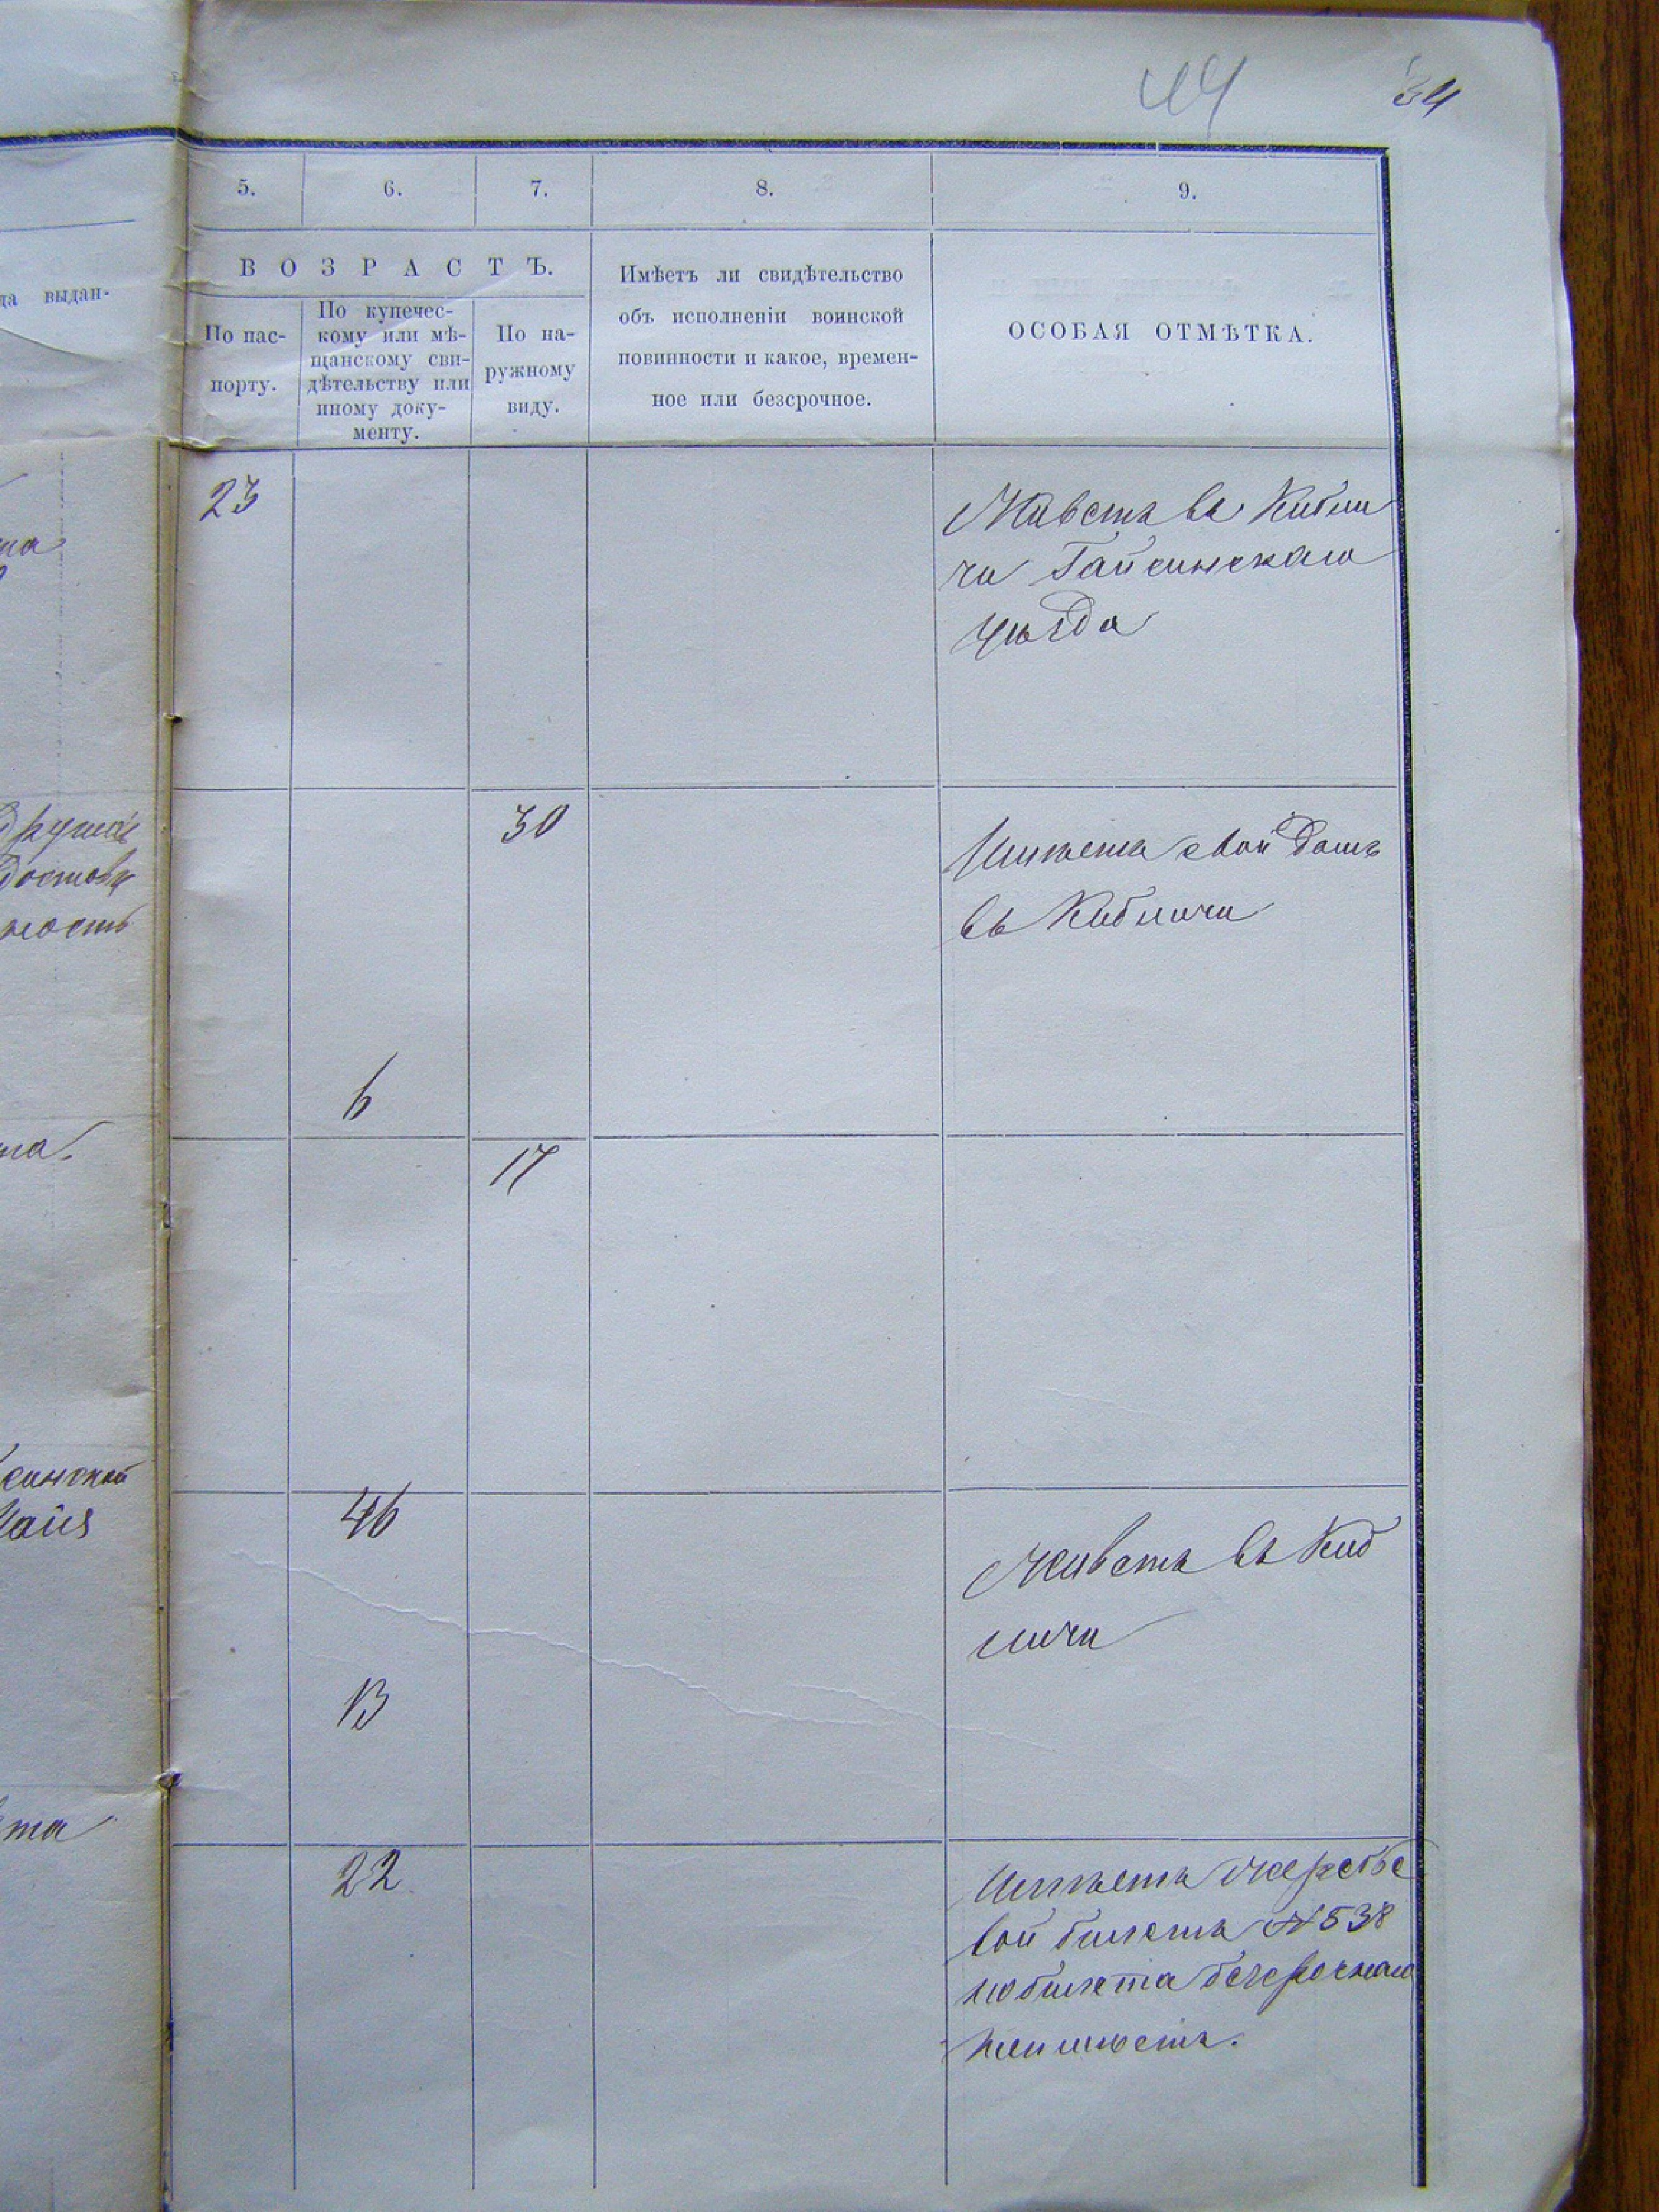 44 34
5. 6. 7. 8. 9.
да выдан-
ВОЗРАСТЪ.
По пас-
порту.
По купечес-
кому или мѣ-
щанскому сви-
дѣтельству или
иному доку-
менту.
По на-
ружному
виду.
Имѣетъ ли свидѣтельство
объ исполненіи воинской
повинности и какое, времен-
ное или безсрочное.
ОСОБАЯ ОТМѢТКА.
23
Живетъ въ Кибли
чи Гайсинскаго
уѣзда
30
Имѣетъ свой домъ
въ Кибличи
6
17
46
Живетъ въ Киб
личи
13
22
Имѣетъ жеребье
вой билетъ №538
но билета безсрочнаго
неимѣетъ.
ность
та.
та